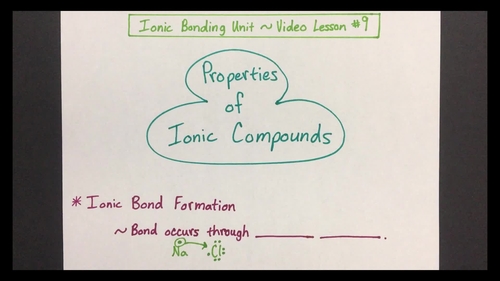 Ionic Bonding Unit ~ Video Lesson #9
Properties
of
Ionic Compounds
* Ionic Bond Formation
~ Bond occurs through ________ ________.
Na Cl